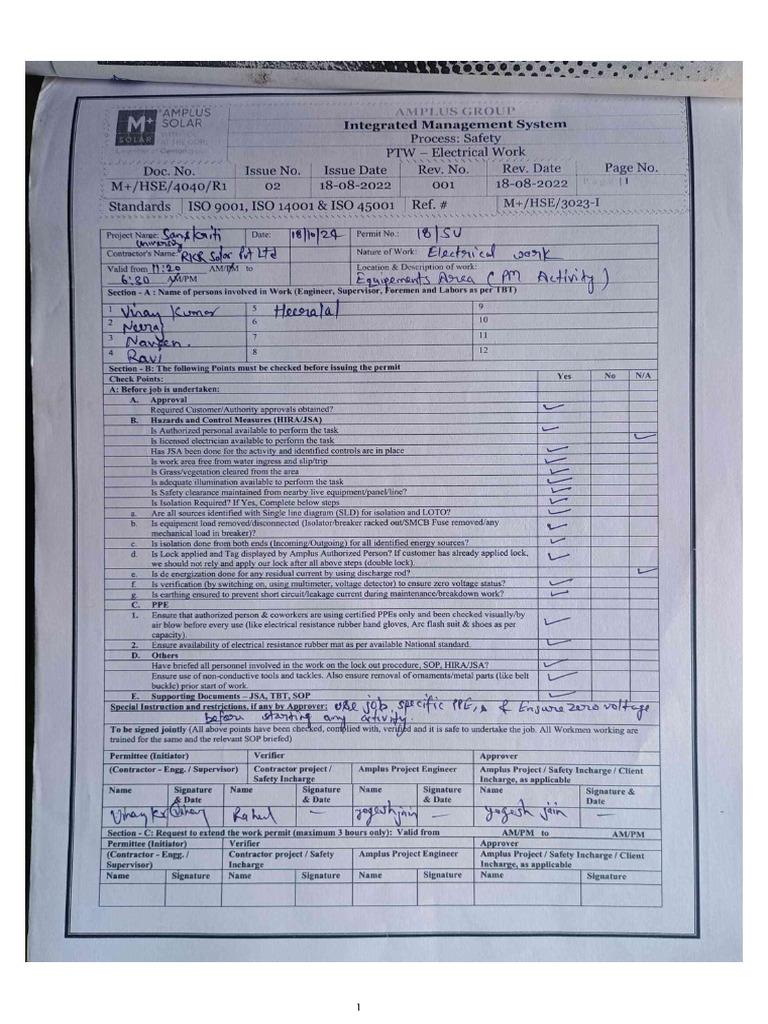 AMPLUS GROUP
M+ SOLAR
AMPLUS SOLAR
Integrated Management System
Process: Safety
PTW – Electrical Work
Doc. No. Issue No. Issue Date Rev. No. Rev. Date Page No.
M+/HSE/4040/R1 02 18-08-2022 001 18-08-2022 1
Standards ISO 9001, ISO 14001 & ISO 45001 Ref. # M+/HSE/3023-I
Project Name: Sanskriti University Date: 18/10/24 Permit No.: 18/SU
Contractor's Name: RKR Solar Pvt Ltd Nature of Work: Electrical work
Valid from 11:20 AM/PM to 6:30 AM/PM Location & Description of work: Equipements Area (PM Activity)
Section - A : Name of persons involved in Work (Engineer, Supervisor, Foremen and Labors as per TBT)
1 Vinay Kumar 5 Heeralal 9
2 Neeraj 6 10
3 Naveen. 7 11
4 Ravi 8 12
Section - B: The following Points must be checked before issuing the permit
Check Points: Yes No N/A
A: Before job is undertaken:
A. Approval
Required Customer/Authority approvals obtained?
B. Hazards and Control Measures (HIRA/JSA)
Is Authorized personal available to perform the task
Is licensed electrician available to perform the task
Has JSA been done for the activity and identified controls are in place
Is work area free from water ingress and slip/trip
Is Grass/vegetation cleared from the area
Is adequate illumination available to perform the task
Is Safety clearance maintained from nearby live equipment/panel/line?
Is Isolation Required? If Yes, Complete below steps
a. Are all sources identified with Single line diagram (SLD) for isolation and LOTO?
b. Is equipment load removed/disconnected (Isolator/breaker racked out/SMCB Fuse removed/any
mechanical load in breaker)?
c. Is isolation done from both ends (Incoming/Outgoing) for all identified energy sources?
d. Is Lock applied and Tag displayed by Amplus Authorized Person? If customer has already applied lock,
we should not rely and apply our lock after all above steps (double lock).
e. Is de energization done for any residual current by using discharge rod?
f. Is verification (by switching on, using multimeter, voltage detector) to ensure zero voltage status?
g. Is earthing ensured to prevent short circuit/leakage current during maintenance/breakdown work?
C. PPE
1. Ensure that authorized person & coworkers are using certified PPEs only and been checked visually/by
air blow before every use (like electrical resistance rubber hand gloves, Arc flash suit & shoes as per
capacity).
2. Ensure availability of electrical resistance rubber mat as per available National standard.
D. Others
Have briefed all personnel involved in the work on the lock out procedure, SOP, HIRA/JSA?
Ensure use of non-conductive tools and tackles. Also ensure removal of ornaments/metal parts (like belt
buckle) prior start of work.
E. Supporting Documents – JSA, TBT, SOP
Special Instruction and restrictions, if any by Approver: Use job specific PPE,s & Ensure zero voltage
before starting any activity.
To be signed jointly (All above points have been checked, complied with, verified and it is safe to undertake the job. All Workmen working are
trained for the same and the relevant SOP briefed)
Permittee (Initiator) Verifier Approver
(Contractor - Engg. / Supervisor) Contractor project / Safety Incharge Amplus Project Engineer Amplus Project / Safety Incharge / Client Incharge, as applicable
Name Signature & Date Name Signature & Date Name Signature & Date Name Signature & Date
Vinay Kr Vinay Rahul — yogesh jain — yogesh jain —
Section - C: Request to extend the work permit (maximum 3 hours only): Valid from AM/PM to AM/PM
Permittee (Initiator) Verifier Approver
(Contractor - Engg. / Supervisor) Contractor project / Safety Incharge Amplus Project Engineer Amplus Project / Safety Incharge / Client Incharge, as applicable
Name Signature Name Signature Name Signature Name Signature
1